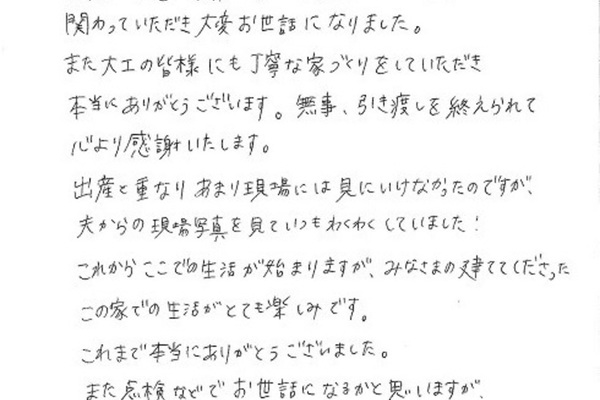 関わっていただき大変お世話になりました。
また大工の皆様にも丁寧な家づくりをしていただき
本当にありがとうございます。無事、引き渡しを終えられて
心より感謝いたします。
出産と重なりあまり現場には見にいけなかったのですが、
夫からの現場写真を見ていつもわくわくしていました!
これからここでの生活が始まりますが、みなさまの建ててくださった
この家での生活がとても楽しみです。
これまで本当にありがとうございました。
また点検などでお世話になるかと思いますが、